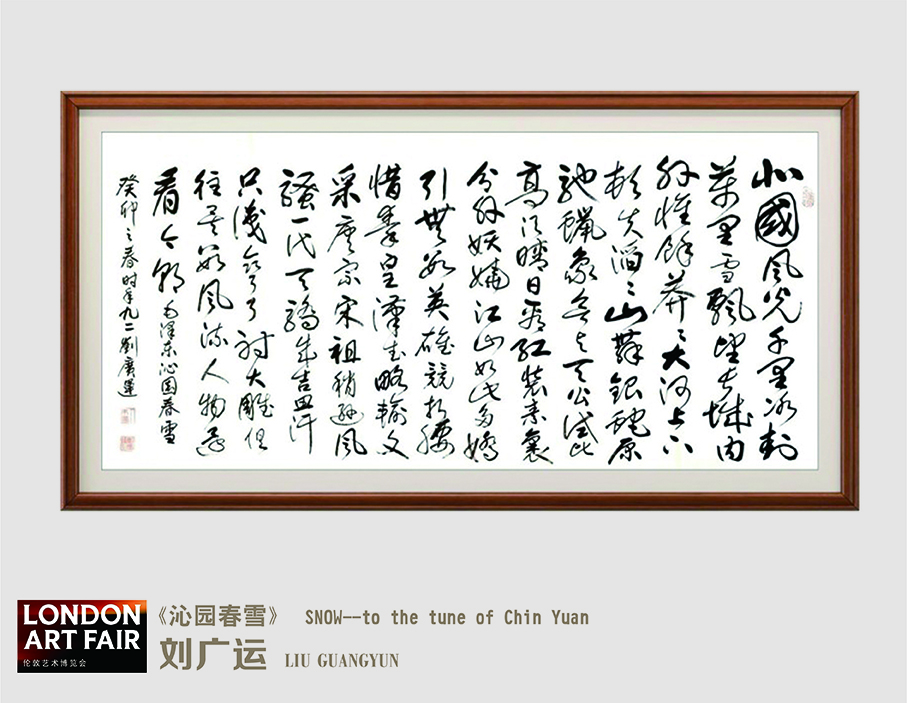 北國風光千里冰封
萬里雪飄望长城内
外惟餘莽〻大河上下
頓失滔〻山舞銀蛇原
馳蠟象欲与天公试比
高须晴日看红裝素裹
分外妖嬈江山如此多嬌
引無数英雄競折腰
惜秦皇漢武略輸文
采唐宗宋祖稍遜風
騷一代天驕成吉思汗
只識彎弓射大雕但
往矣数風流人物還
看今朝 毛澤东沁园春雪
癸卯之春时年九二劉廣運
LONDON
ART FAIR
伦敦艺术博览会
《沁园春雪》 SNOW--to the tune of Chin Yuan
刘广运 LIU GUANGYUN